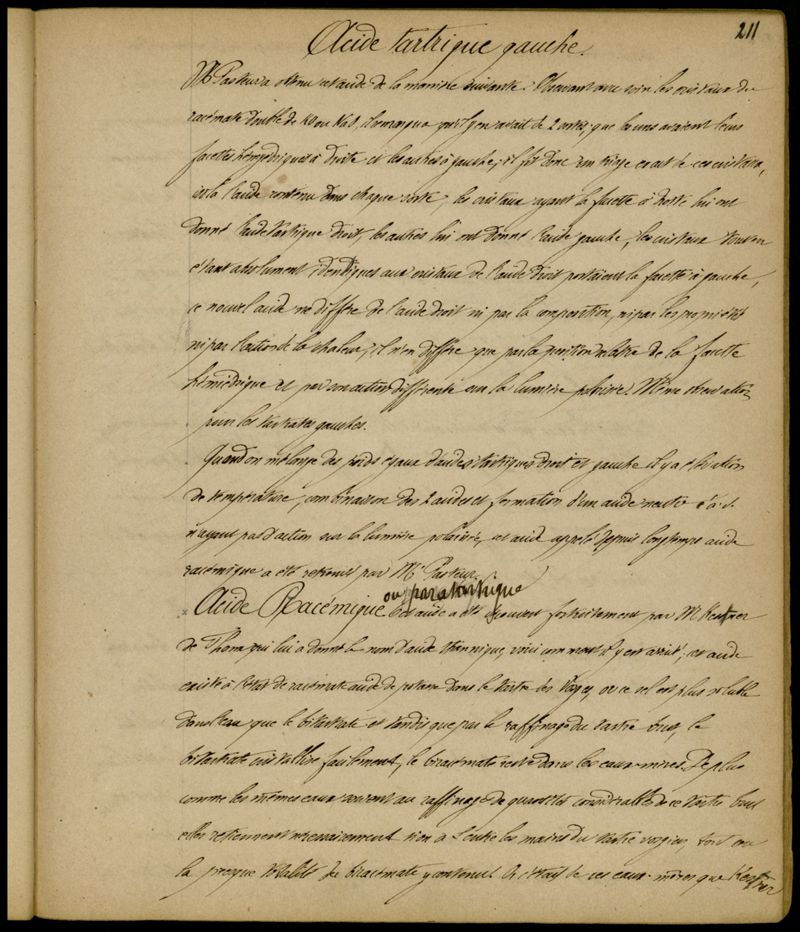 211
Acide tartrique gauche.
Mr Pasteur a obtenu cet acide de la manière suivante : Observant avec soin les cristaux du
racémate double de KO ou NaO, il remarqua qu'il y en avait de 2 sortes, que les uns avaient leurs
facettes hémyédriques à droite et les autres à gauche, il fit donc un triage exact de ces cristaux,
isola l'acide contenu dans chaque sorte, les cristaux ayant la facette à droite lui ont
donné l'acide tartrique droit, les autres lui ont donné l'acide gauche, les cristaux tout en
étant absolument identiques aux cristaux de l'acide droit portaient la facette à gauche,
ce nouvel acide ne diffère de l'acide droit ni par la composition, ni par les propriétés
ni par l'action de la chaleur, il n'en diffère que par la position de la facette
hémiédrique et par son action différente sur la lumière polarisée. Même observation
pour les tartrates gauches.
Quand on mélange des poids égaux d'acides tartriques droit et gauche il y a élévation
de température, combinaison des 2 acides et formation d'un acide neutre c.à.d.
n'ayant pas d'action sur la lumière polarisée, cet acide appelé depuis longtemps acide
racémique a été retrouvé par Mr Pasteur.
Acide Racémique ou paratartrique Cet acide a été découvert fortuitement par M. Kestner
de Thann qui lui a donné le nom d'acide thannique, voici comment il y est arrivé, cet acide
existe à l'état de racémate acide de potasse dans le tartre des Vosges, or ce sel est plus soluble
dans l'eau que le bitartrate et tandis que par le raffinage du tartre brut, le
bitartrate cristallise facilement, le biracémate reste dans les eaux-mères. De plus
comme les mêmes eaux servent au raffinage de quantités considérables de ce tartre brut
elles retiennent nécessairement sinon à toutes les mères du tartre vosgien tout ou
la presque totalité du biracémate y contenu. Or c'était de ces eaux-mères que Kestner